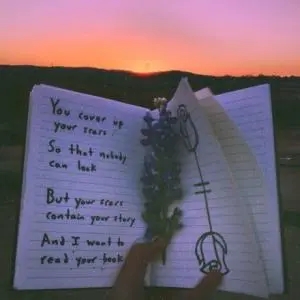 You cover up
your scars
So that nobody
can look
But your scars
contain your story
And I want to
read your book